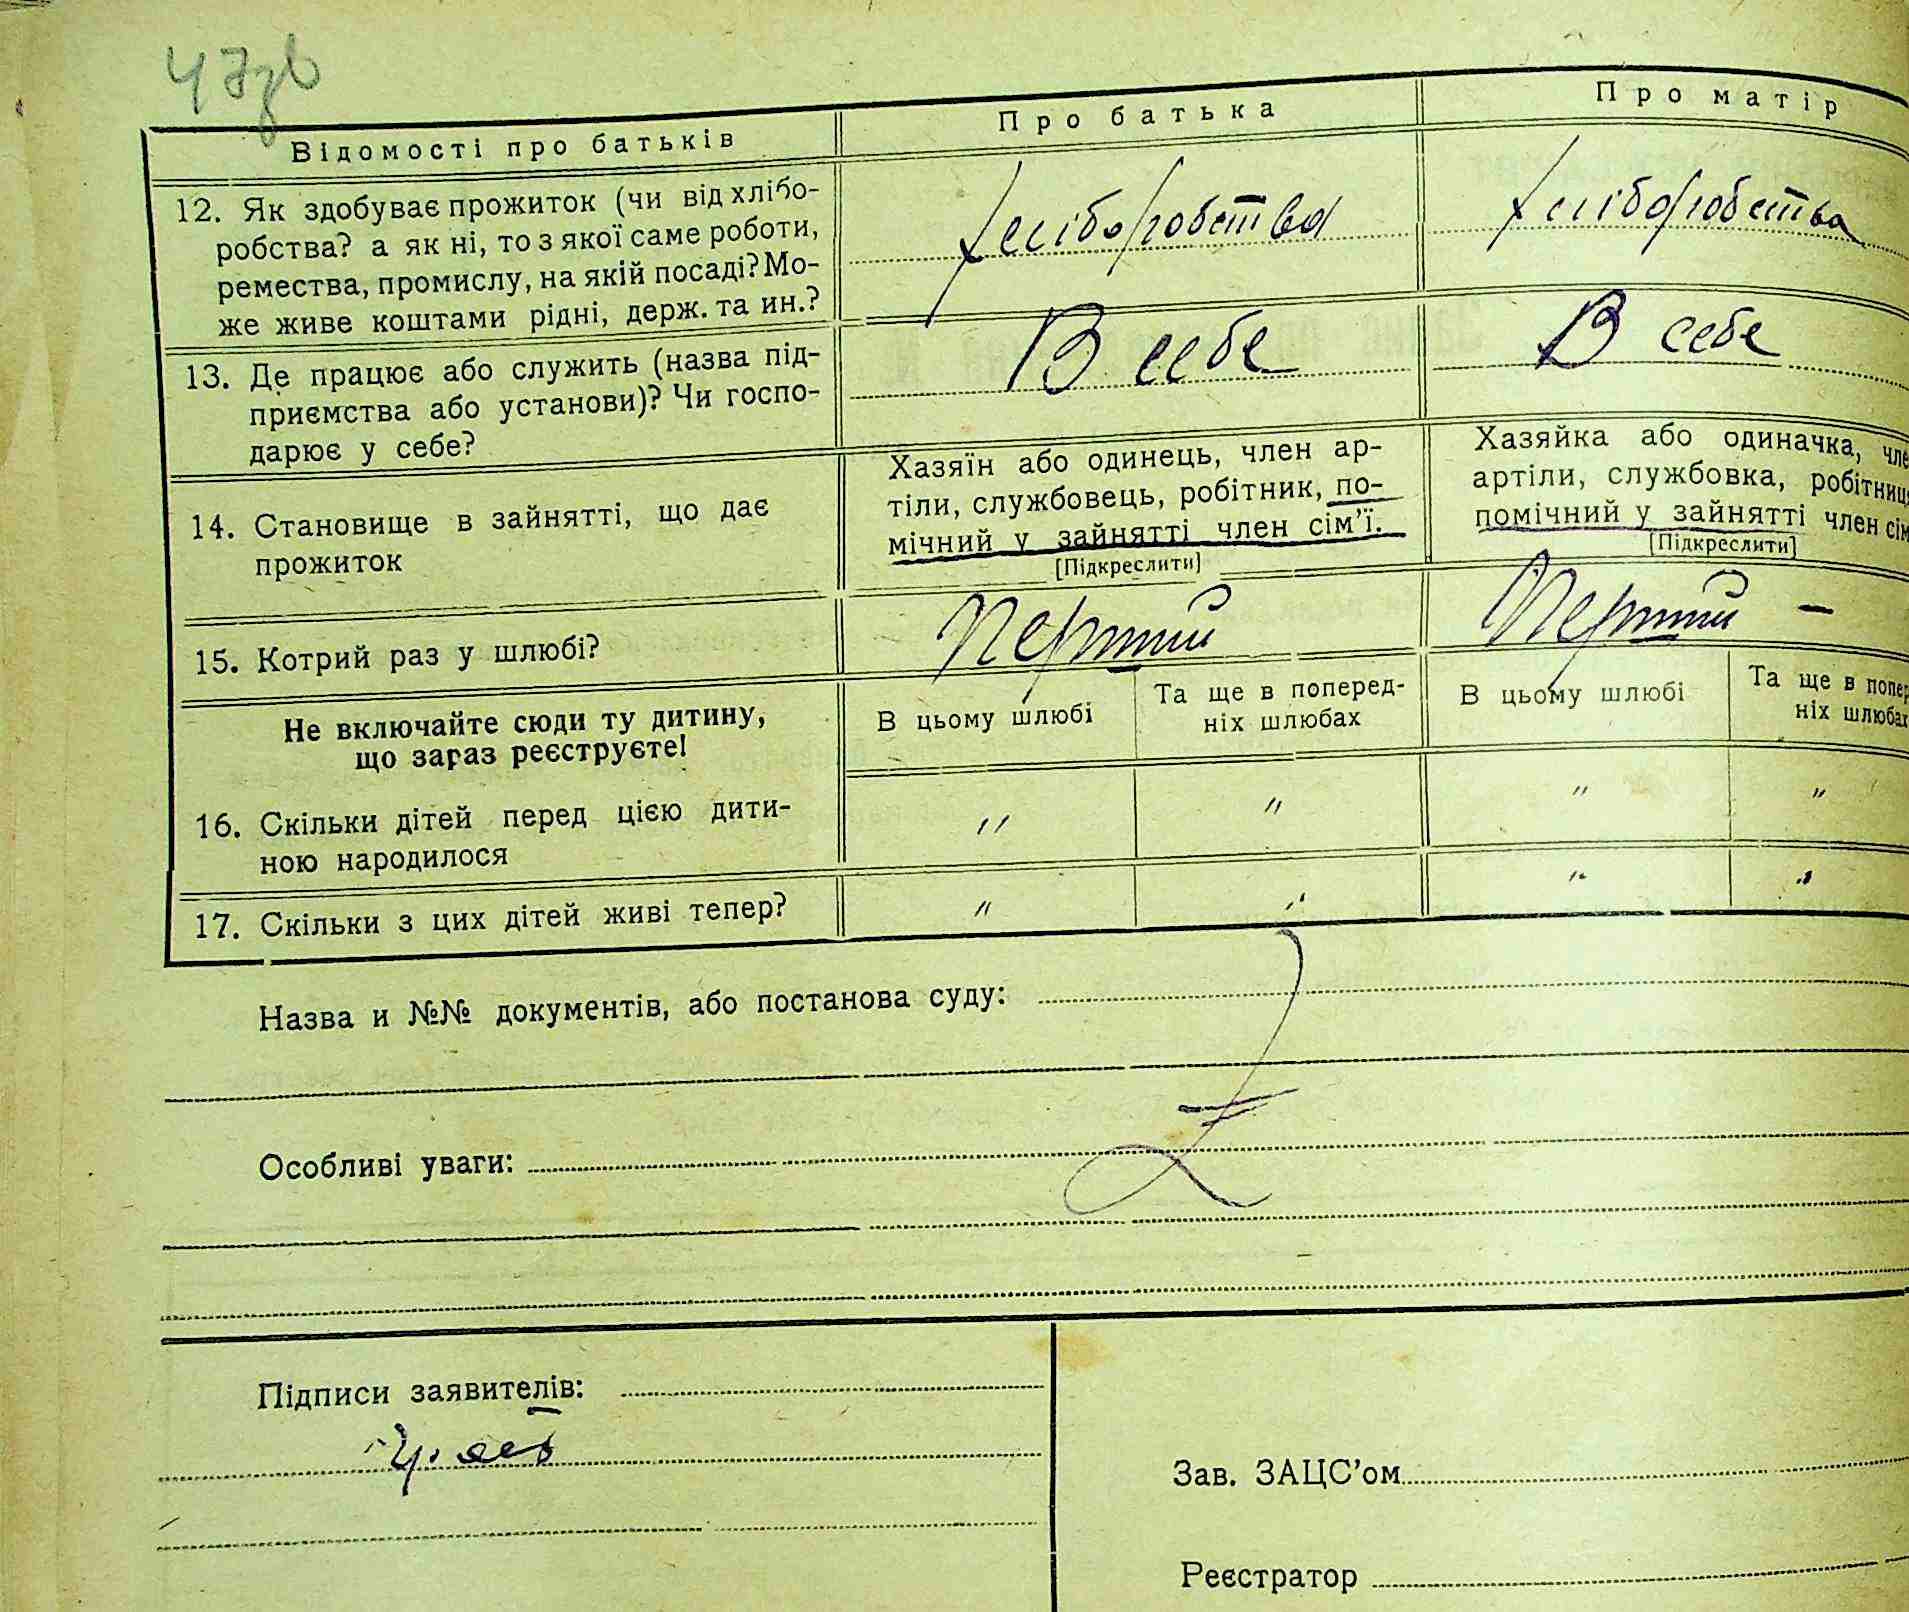 47зв
Відомості про батьків
Про батька
Про матір
12. Як здобуває прожиток (чи від хлібо-
робства? а як ні, то з якої саме роботи,
ремества, промислу, на якій посаді? Мо-
же живе коштами рідні, держ. та ин.?
хліборобства
хліборобства
13. Де працює або служить (назва під-
приємства або установи)? Чи госпо-
дарює у себе?
В себе
В себе
14. Становище в зайнятті, що дає
прожиток
Хазяїн або одинець, член ар-
тіли, службовець, робітник, по-
мічний у зайнятті член сім’ї.
[Підкреслити]
Хазяйка або одиначка, чле
артіли, службовка, робітниц
помічний у зайнятті член сім
[Підкреслити]
15. Котрий раз у шлюбі?
Перший
Перший –
Не включайте сюди ту дитину,
що зараз реєструєте!
В цьому шлюбі
Та ще в поперед-
ніх шлюбах
В цьому шлюбі
Та ще в попер
ніх шлюбах
16. Скільки дітей перед цією дити-
ною народилося
" " " "
17. Скільки з цих дітей живі тепер?
" " " "
Назва и №№ документів, або постанова суду:
Особливі уваги:
Підписи заявителів:
Зав. ЗАЦС’ом
Реєстратор